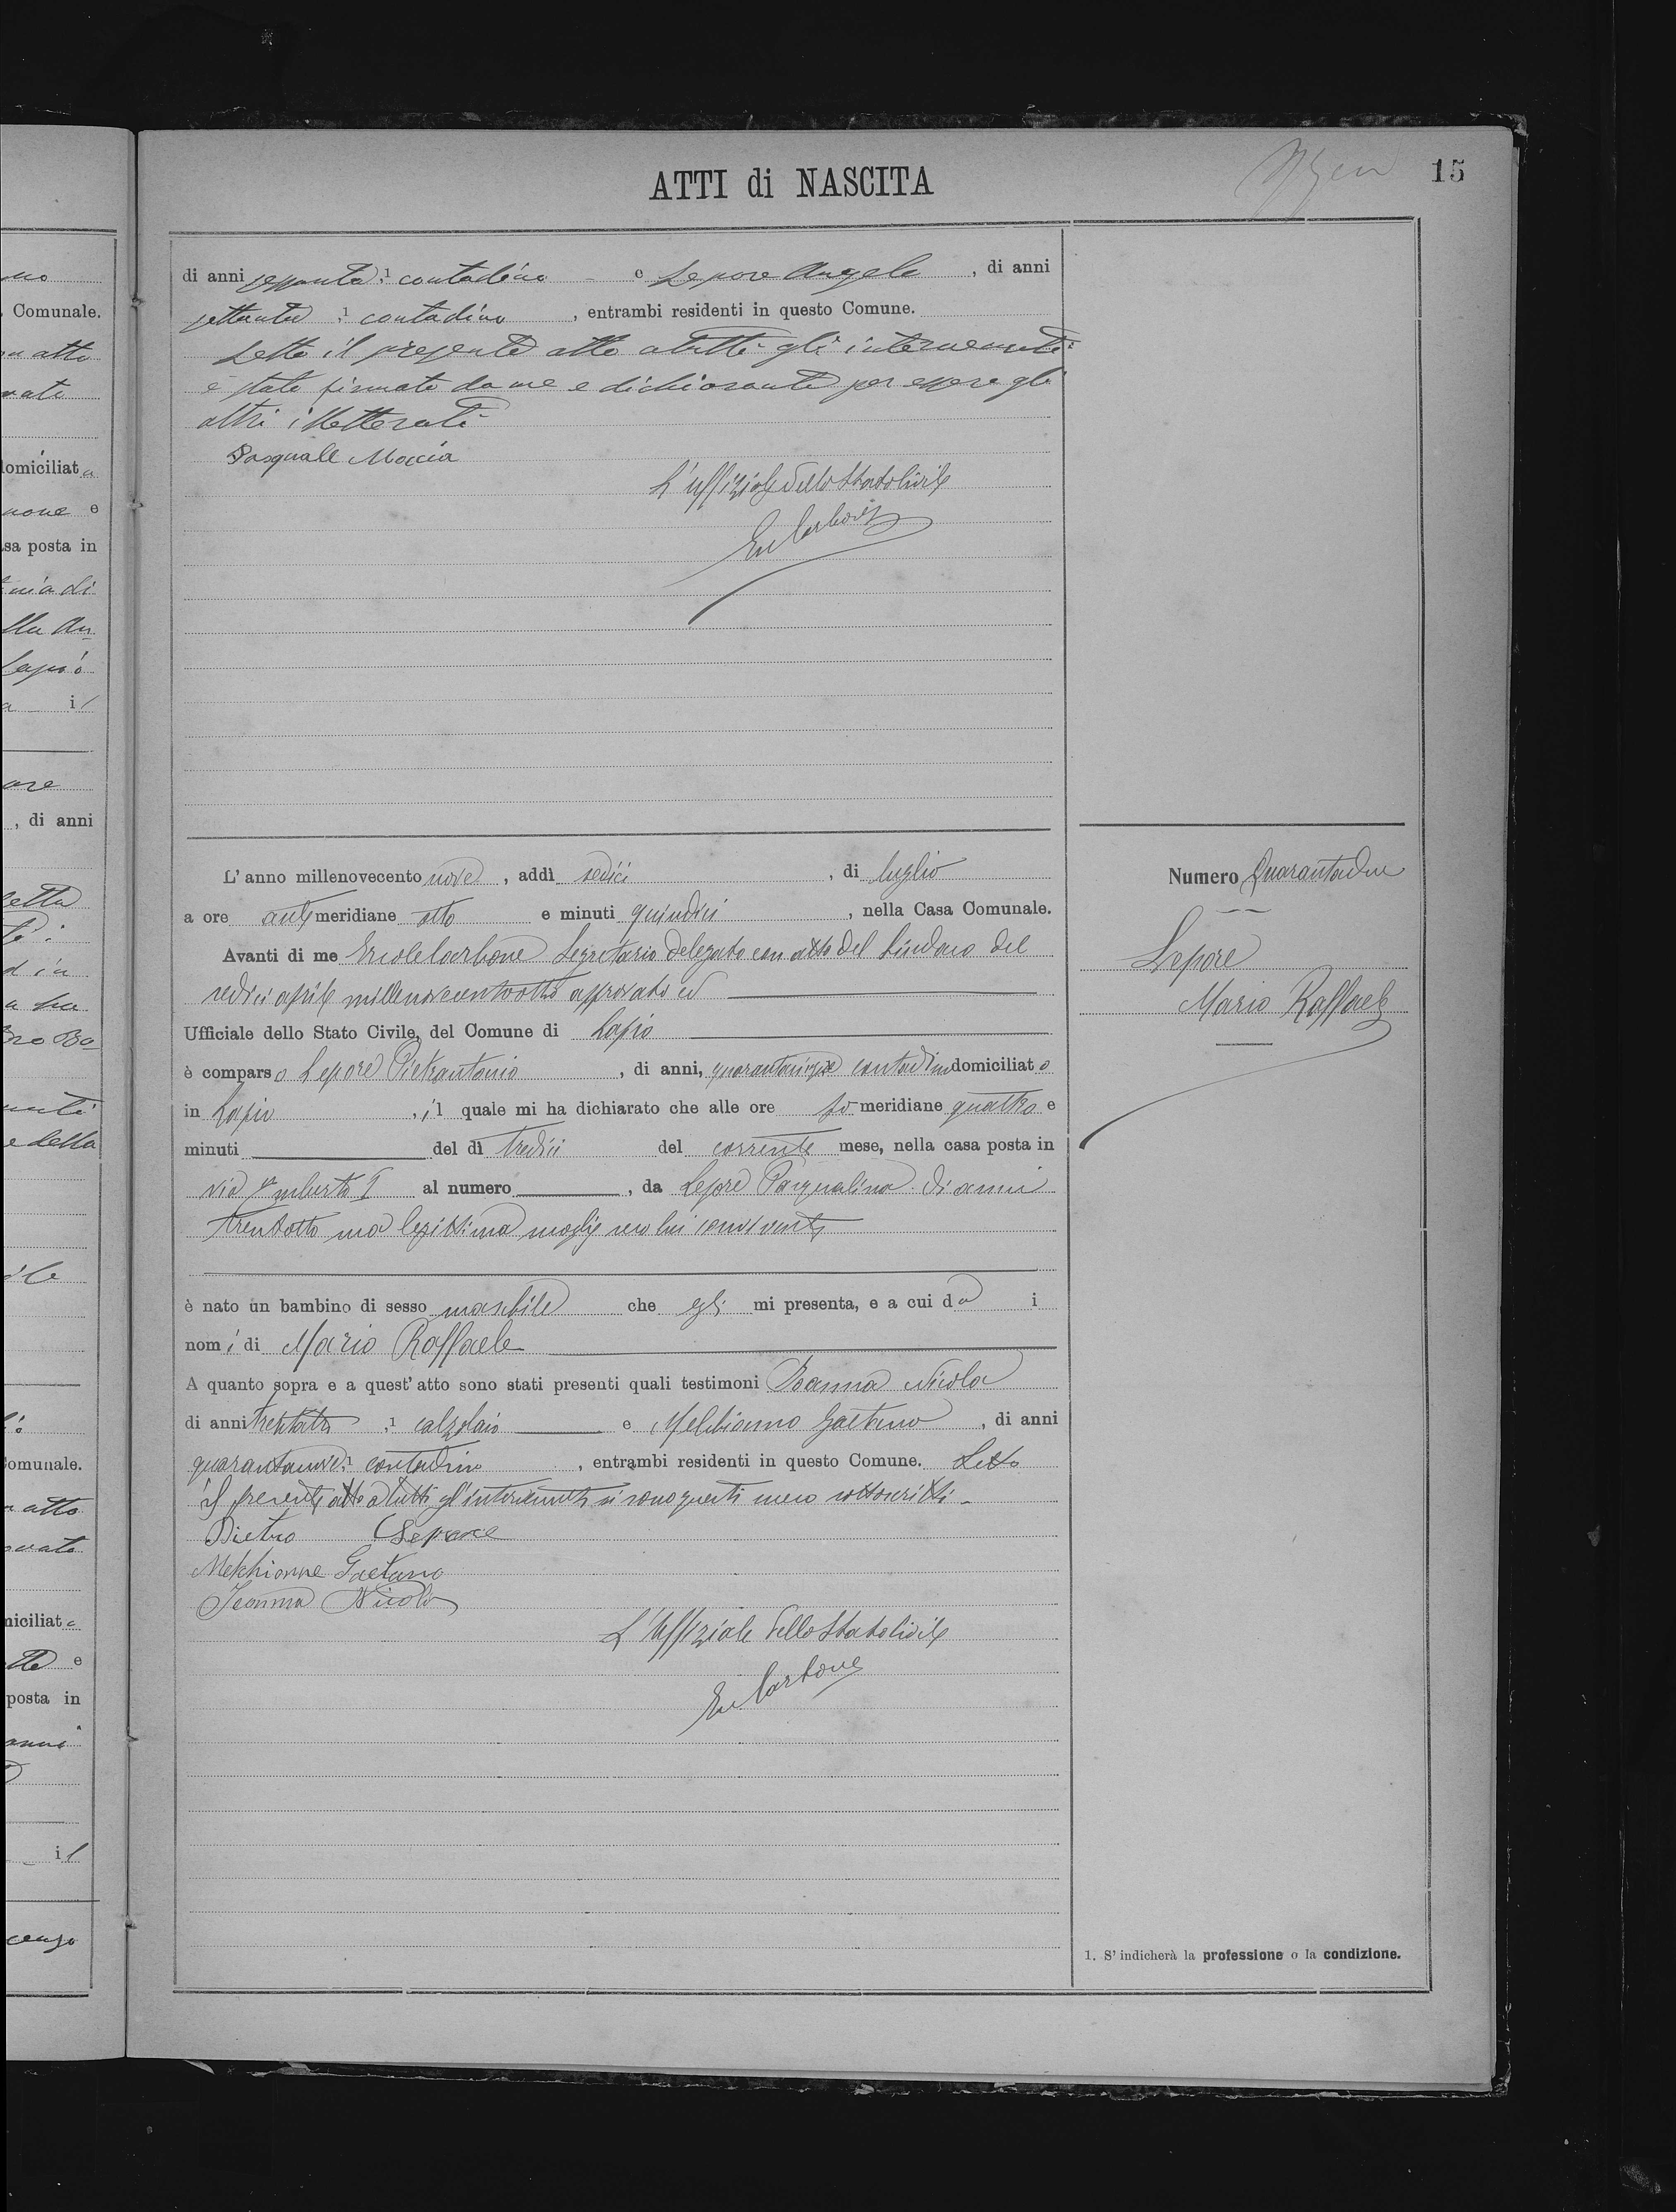 ATTI di NASCITA
15
di anni sessanta 1 contadino e Lepore Angelo, di anni
settanta 1 contadino, entrambi residenti in questo Comune.
Letto il presente atto a tutti gli intervenuti
è stato firmato da me e dichiarante per essere gli
altri illetterati
Pasquale Moccia
L'Uffiziale dello Stato Civile
Er Carbone
Numero Quarantadue
Lepore
Mario Raffaele
L'anno millenovecento nove, addì sedici, di luglio
a ore anti meridiane otto e minuti quindici, nella Casa Comunale.
Avanti di me Ercole Carbone Segretario delegato con atto del Sindaco del
sedici aprile millenovecentootto approvato ed
Ufficiale dello Stato Civile, del Comune di Lapio
è comparso Lepore Pietrantonio, di anni, quarantacinque contadino domiciliato
in Lapio, il quale mi ha dichiarato che alle ore po meridiane quattro e
minuti del dì tredici del corrente mese, nella casa posta in
via Umberto I al numero, da Lepore Pasqualina di anni
trentotto sua legittima moglie seco lui convivente
è nato un bambino di sesso maschile che egli mi presenta, e a cui da i
nomi di Mario Raffaele
A quanto sopra e a quest'atto sono stati presenti quali testimoni Ioanna Nicola
di anni trentatre 1 calzolaio e Melchionno Gaetano, di anni
quarantanove 1 contadino, entrambi residenti in questo Comune. Letto
il presente atto a tutti gl'intervenuti si sono questi meco sottoscritti.
Pietro Lepore
Melchionne Gaetano
Ioanna Nicola
L'Uffiziale dello Stato Civile
Er Carbone
1. S'indicherà la professione o la condizione.
Comunale.
n atto
domiciliata
none e
sa posta in
nia di
Lapio
il
, di anni
Comunale.
n atto
miciliat
e
posta in
anni
il